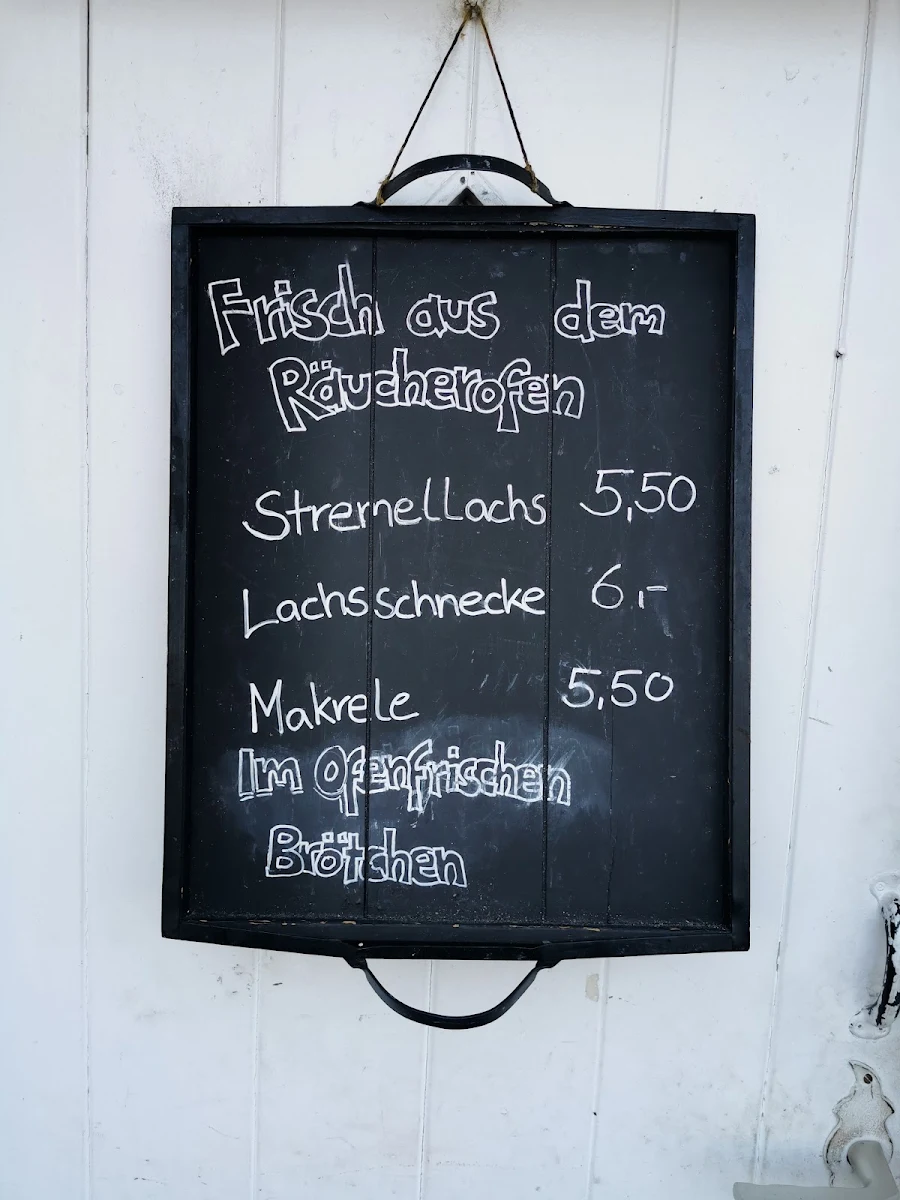 Frisch aus dem
Räucherofen
Stremellachs 5,50
Lachsschnecke 6,-
Makrele 5,50
Im Ofenfrischen
Brötchen